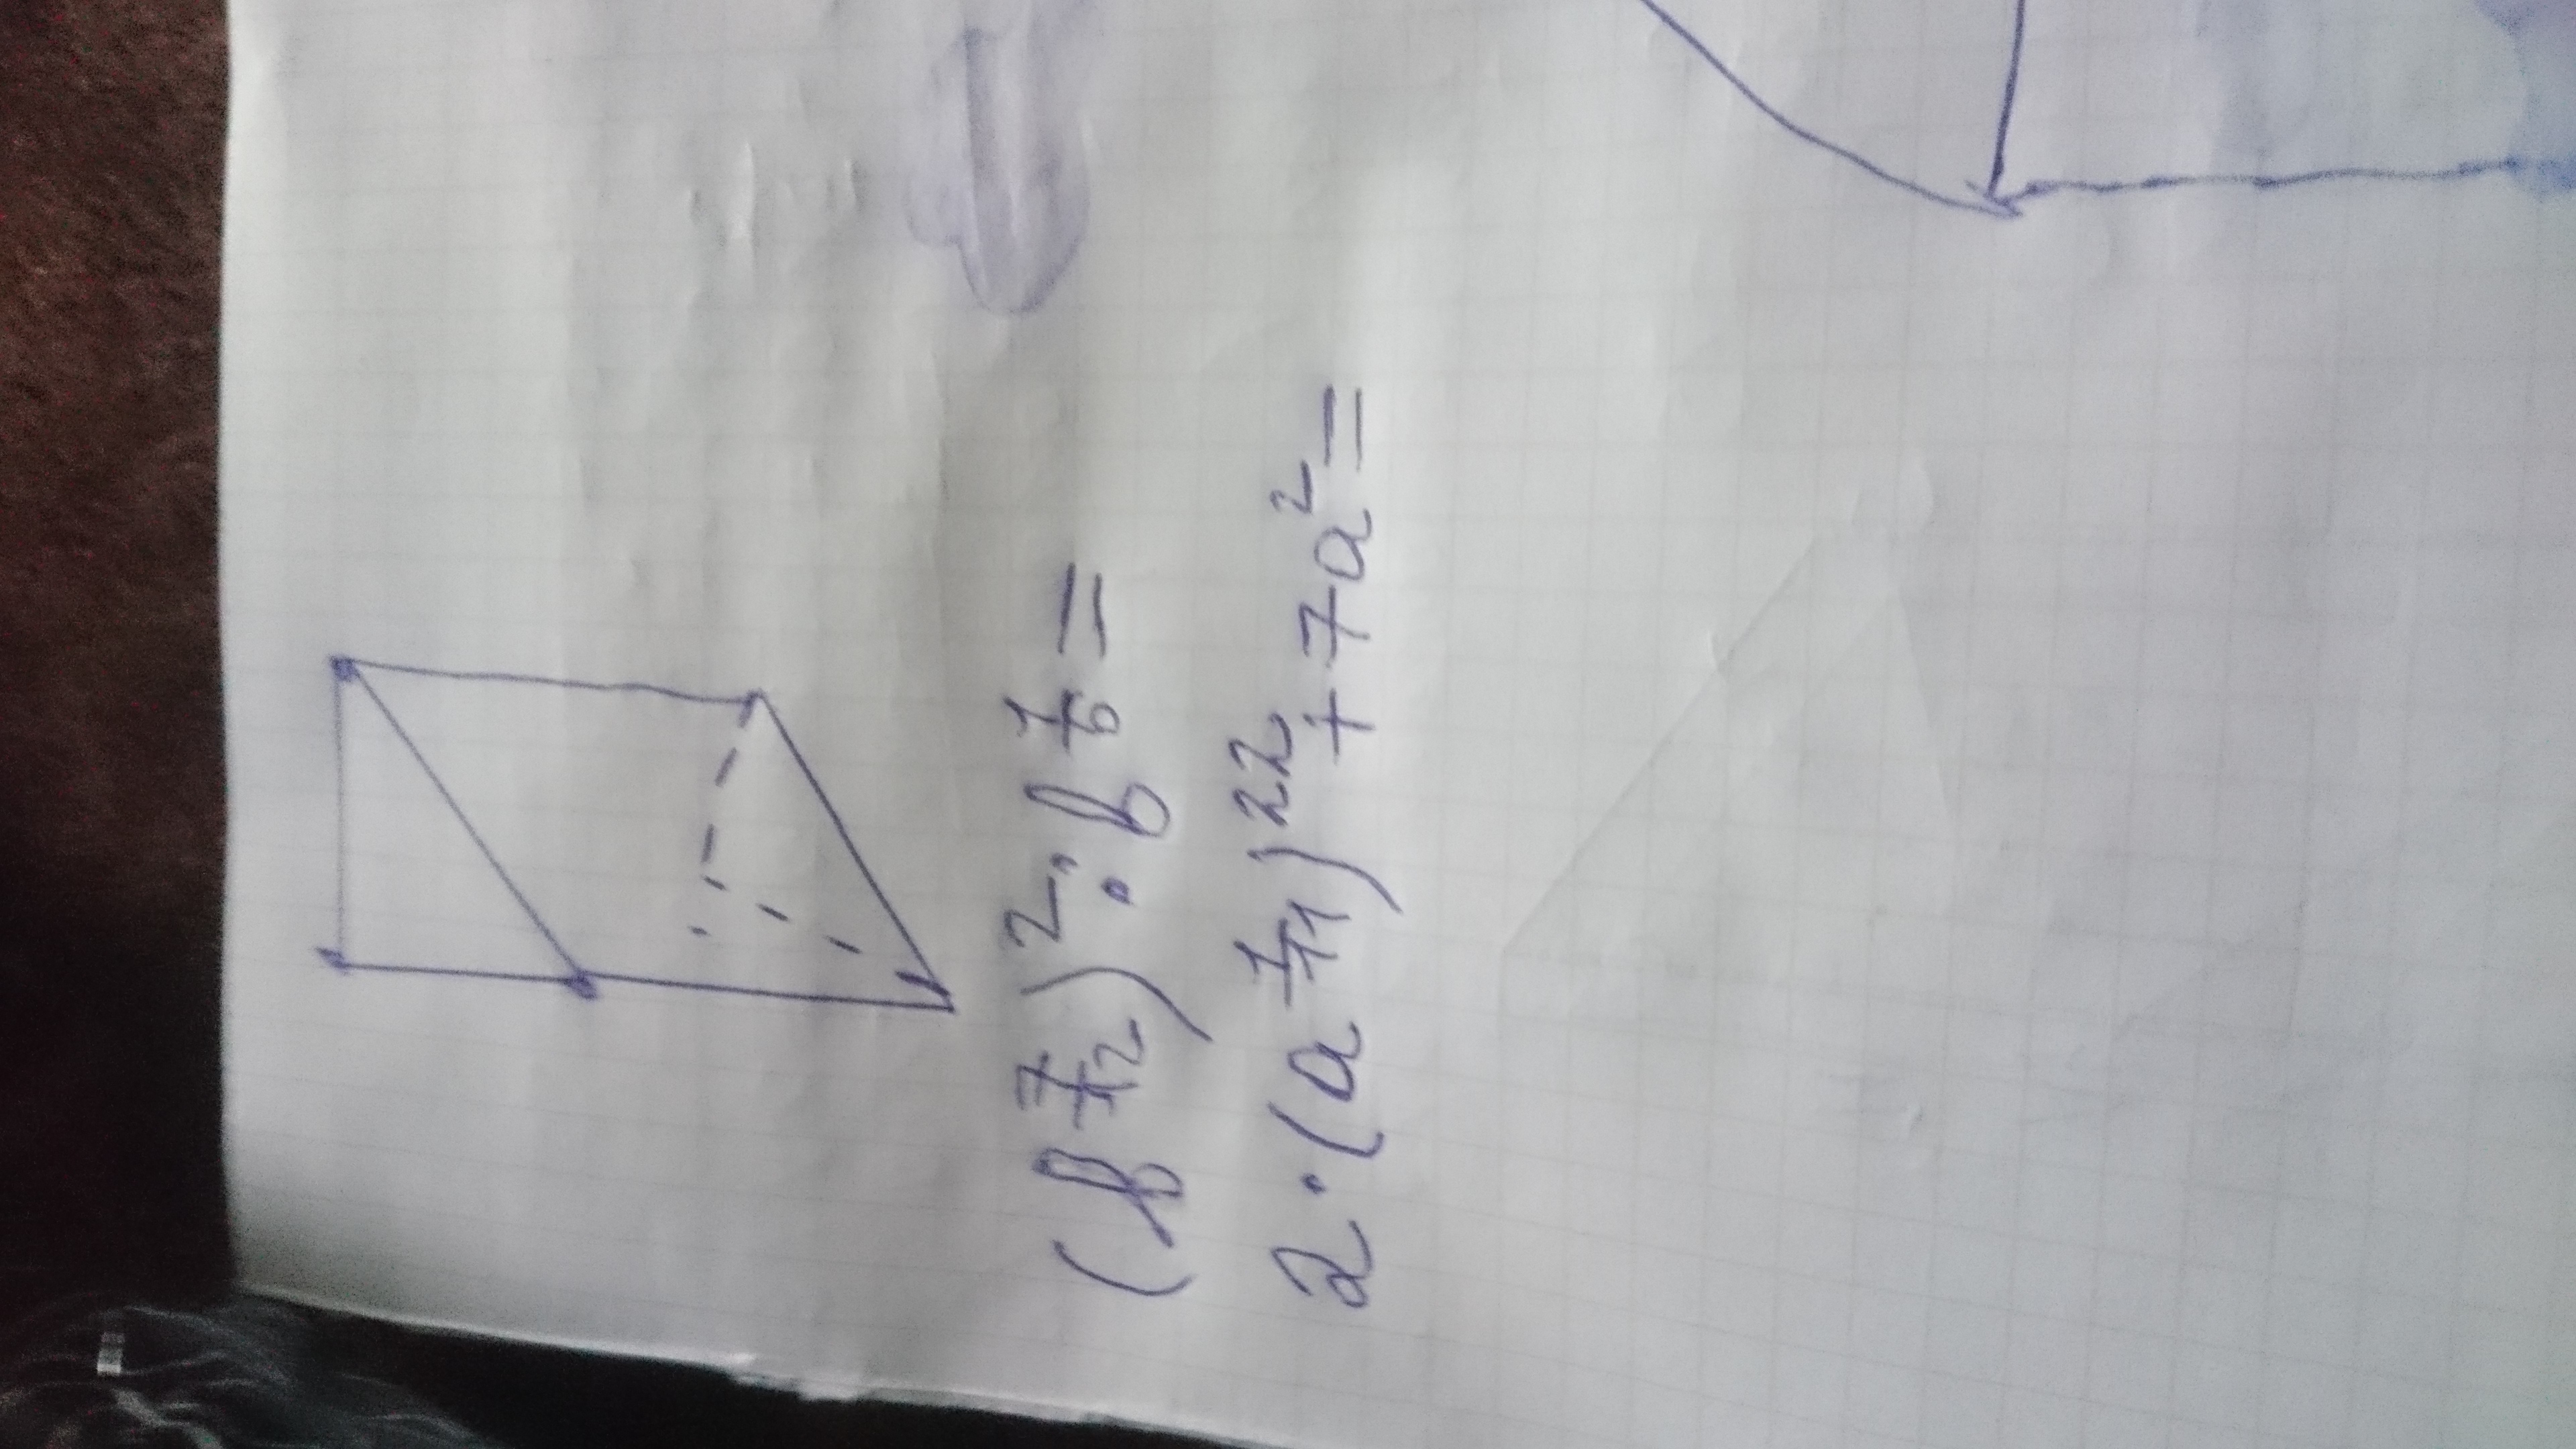 (b 7/12)² : b 1/6 =
2·(a 1/11)²² + 7a² =